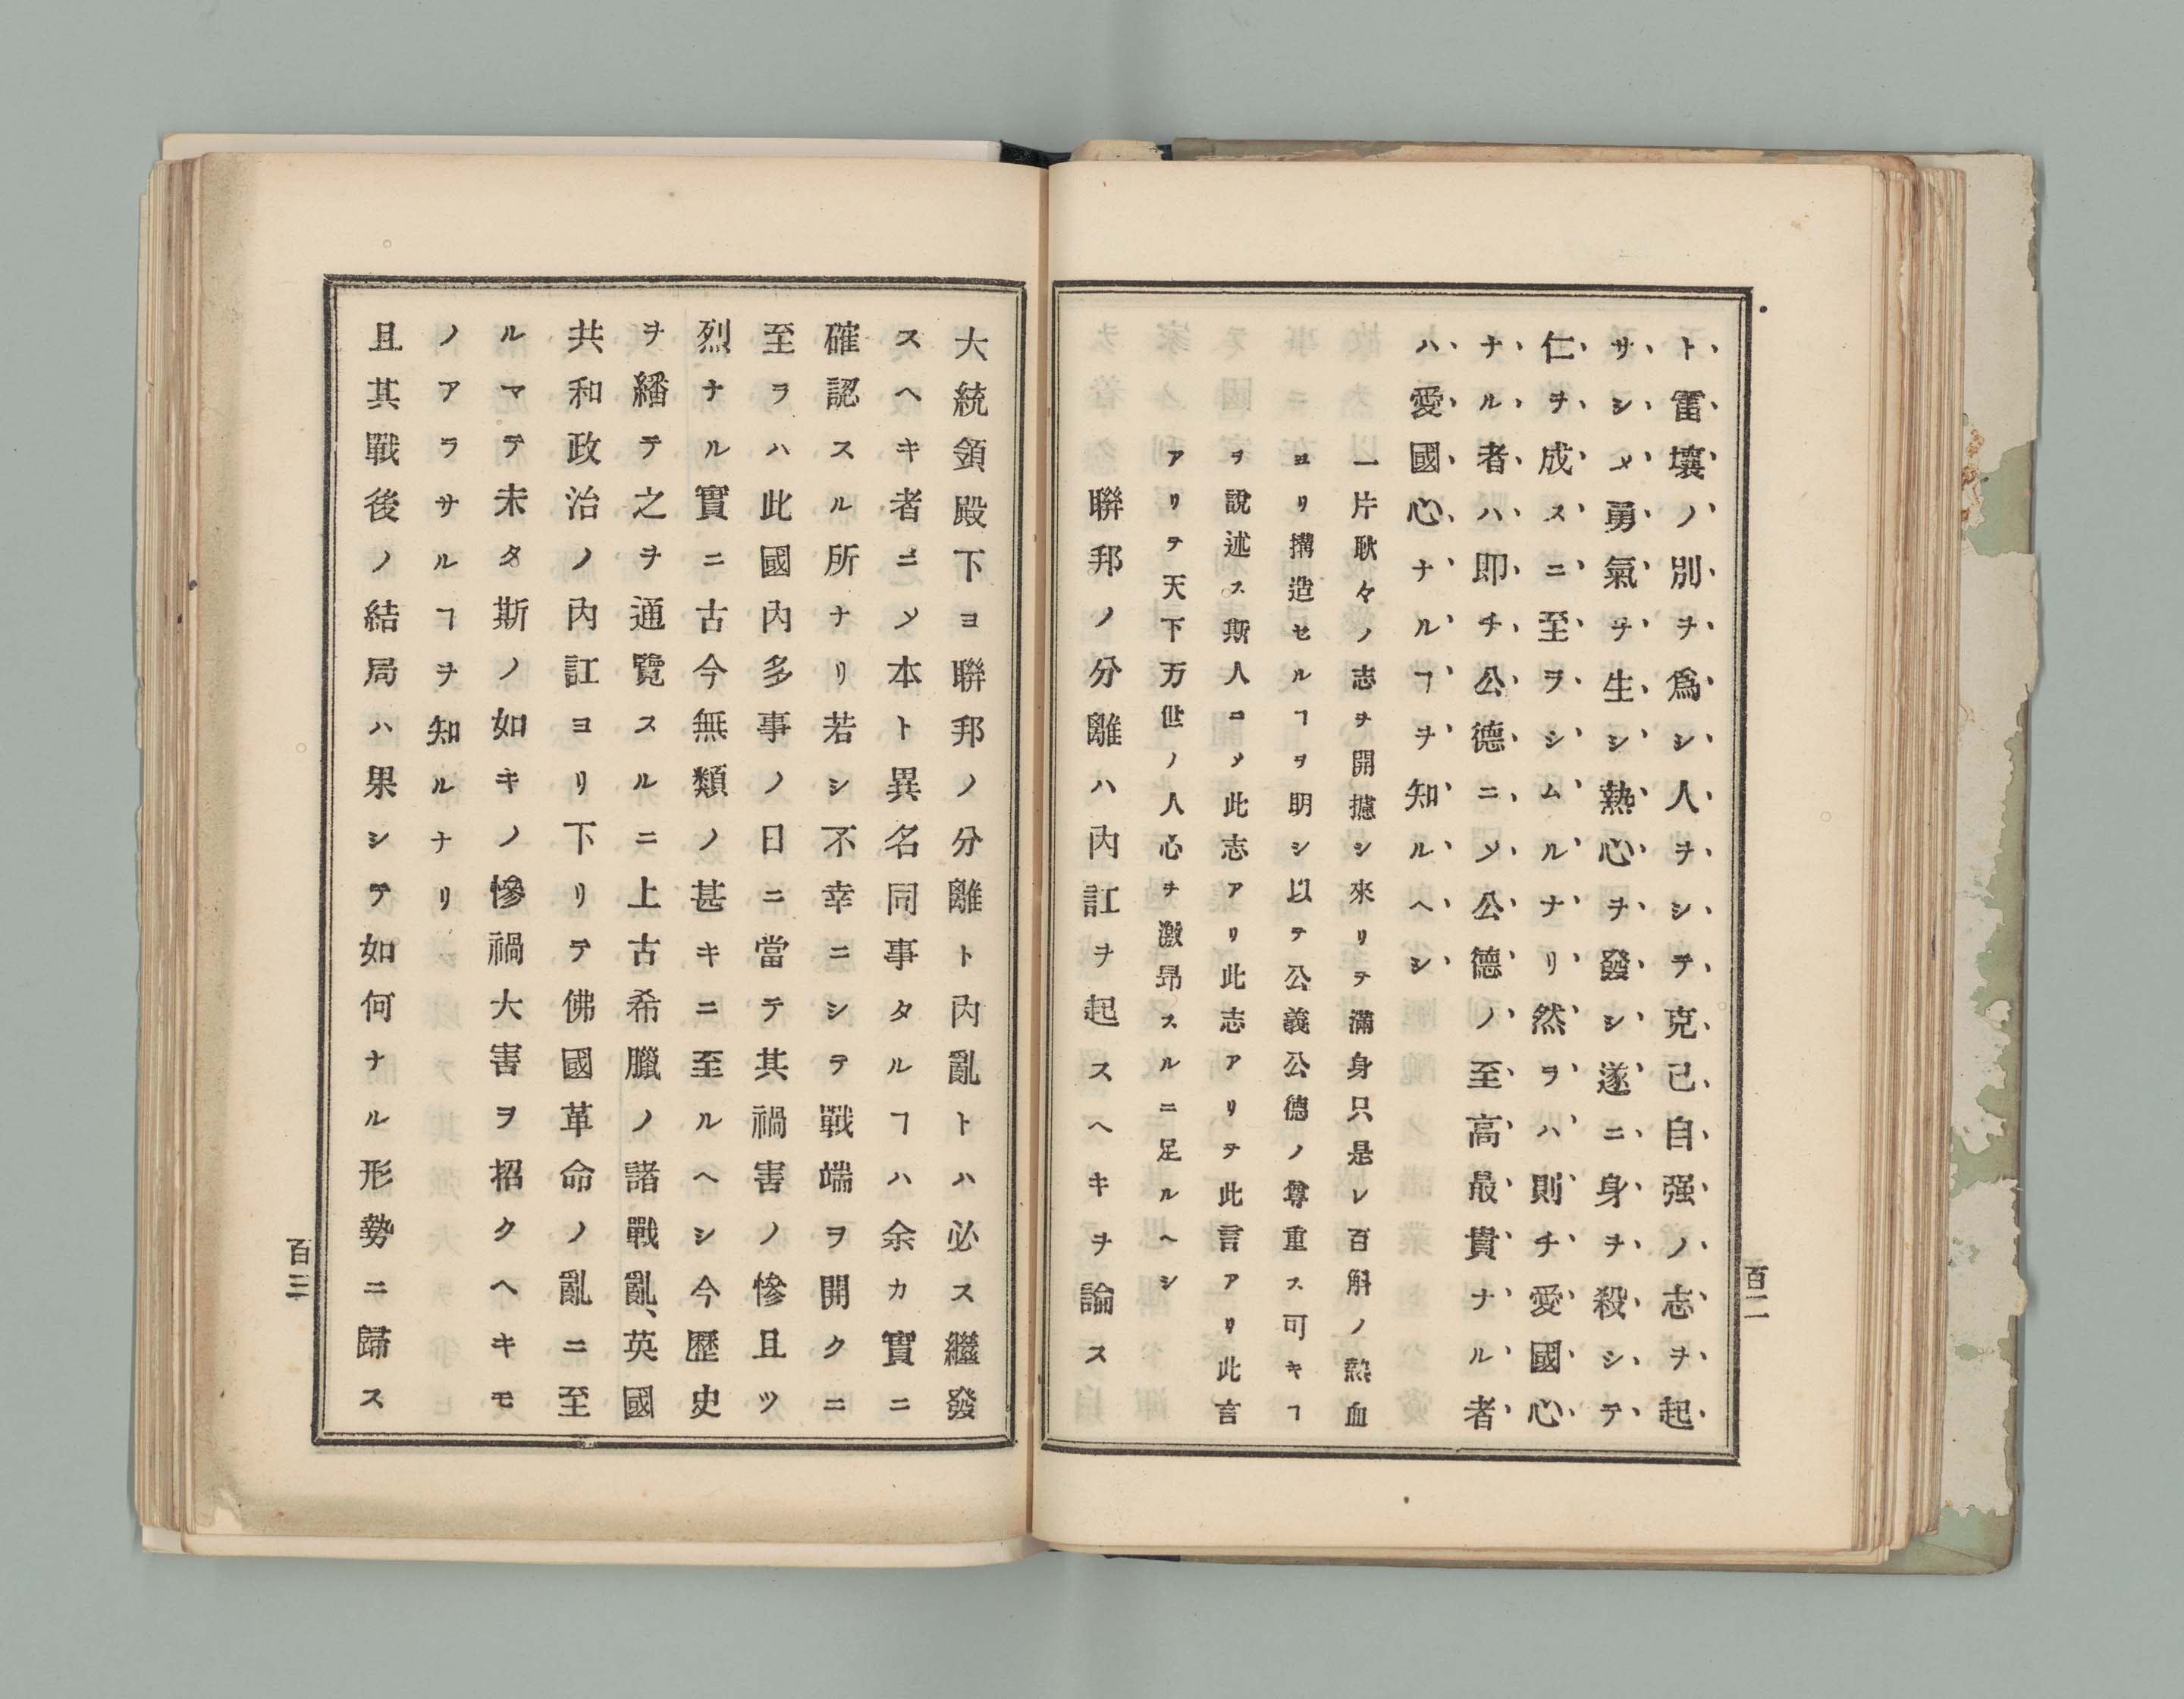 ト雷壤ノ別ヲ爲シ人ヲシテ克己自强ノ志ヲ起
サシメ勇氣ヲ生シ熱心ヲ發シ遂ニ身ヲ殺シテ
仁ヲ成スニ至ヲシムルナリ然ヲハ則チ愛國心
ナル者ハ即チ公德ニㇱテ公德ノ至高最貴ナル者
ハ愛國心ナルヿヲ知ルヘシ
一片耿々ノ志ヲ開攄シ來リテ滿身只是レ百斛ノ熱血
ヨリ搆造セルヿヲ明シ以テ公義公德ノ尊重ス可キヿ
ヲ說述ス斯人ニㇱテ此志アリ此志アリヲ此言アリ此言
アリヲ天下万世ノ人心ヲ激昂スルニ足ルヘシ
聯邦ノ分離ハ內訌ヲ起スヘキヲ論ス
百二
大統領殿下ヨ聯邦ノ分離ト內亂トハ必ス繼發
スヘキ者ニㇱテ本ト異名同事タルヿハ余カ實ニ
確認スル所ナリ若シ不幸ニシテ戰端ヲ開クニ
至ラハ此國內多事ノ日ニ當テ其禍害ノ慘且ツ
烈ナル實ニ古今無類ノ甚キニ至ルヘシ今歷史
ヲ繙テ之ヲ通覽スルニ上古希臘ノ諸戰亂、英國
共和政治ノ內訌ヨリ下リテ佛國革命ノ亂ニ至
ルマテ未タ斯ノ如キノ慘禍大害ヲ招クヘキモ
ノアラサルヿヲ知ルナリ
且其戰後ノ結局ハ果シテ如何ナル形勢ニ歸ス
百三